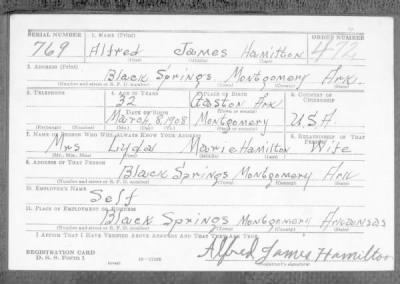 SERIAL NUMBER 1. NAME (Print) ORDER NUMBER
769 Alfred James Hamilton 472
(First) (Middle) (Last)
2. ADDRESS (Print)
Black Springs Montgomery Ark.
(Number and street or R. F. D. number) (Town) (County) (State)
3. TELEPHONE 4. AGE IN YEARS 5. PLACE OF BIRTH 6. COUNTRY OF CITIZENSHIP
32 Gaston Ark
DATE OF BIRTH (Town or county)
March 8, 1908 Montgomery U.S.A
(Exchange) (Number) (Mo.) (Day) (Yr.) (State or country)
7. NAME OF PERSON WHO WILL ALWAYS KNOW YOUR ADDRESS 8. RELATIONSHIP OF THAT PERSON
Mrs Lyda Marie Hamilton Wife
(Mr., Mrs., Miss) (First) (Middle) (Last)
9. ADDRESS OF THAT PERSON
Black Springs Montgomery Ark
(Number and street or R. F. D. number) (Town) (County) (State)
10. EMPLOYER'S NAME
Self
11. PLACE OF EMPLOYMENT OR BUSINESS
Black Springs Montgomery Arkansas
(Number and street or R. F. D. number) (Town) (County) (State)
I AFFIRM THAT I HAVE VERIFIED ABOVE ANSWERS AND THAT THEY ARE TRUE.
REGISTRATION CARD
D. S. S. Form 1 Alfred James Hamilton
(Registrant's signature)